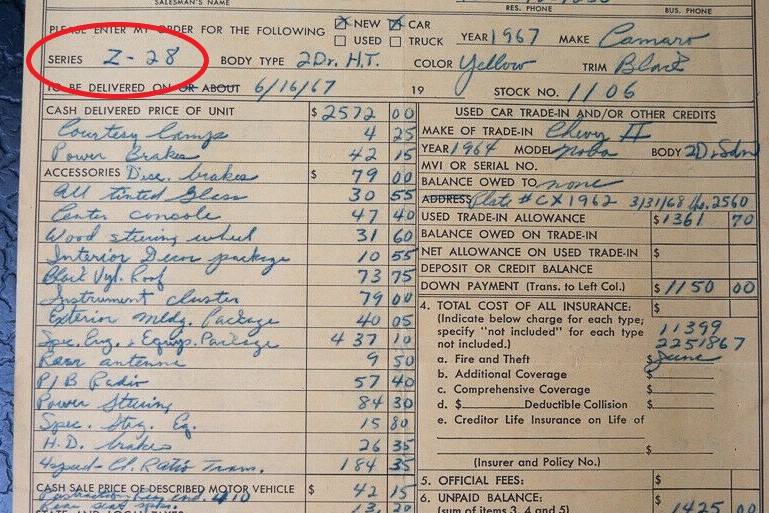 SALESMAN'S NAME RES. PHONE BUS. PHONE
PLEASE ENTER MY ORDER FOR THE FOLLOWING NEW CAR YEAR 1967 MAKE Camaro
USED TRUCK
SERIES Z-28 BODY TYPE 2 Dr. H.T. COLOR Yellow TRIM Black
TO BE DELIVERED ON OR ABOUT 6/16/67 19 STOCK NO. 1106
CASH DELIVERED PRICE OF UNIT $ 2572 00
Courtesy Lamps 4 25
Power Brakes 42 15
ACCESSORIES Disc. brakes $ 79 00
All tinted Glass 30 55
Center console 47 40
Wood steering wheel 31 60
Interior Decor package 10 55
Black Vyl. Roof 73 75
Instrument cluster 79 00
Exterior Mldg. Package 40 05
Spec. Eng. + Equip. Package 437 10
Rear antenna 9 50
P/B Radio 57 40
Power Steering 84 30
Spec. Strg. Eq. 15 80
H.D. brakes 26 35
4 speed - Cl. Ratio Trans. 184 35
CASH SALE PRICE OF DESCRIBED MOTOR VEHICLE $ 42 15
Rear end 410
Rear seat spkr. 13 20
USED CAR TRADE-IN AND/OR OTHER CREDITS
MAKE OF TRADE-IN Chevy II
YEAR 1964 MODEL Nova BODY 2 Dr Sdn
MVI OR SERIAL NO.
BALANCE OWED TO none
ADDRESS Plate # CX 1962 3/31/68 2560
USED TRADE-IN ALLOWANCE $ 1361 70
BALANCE OWED ON TRADE-IN
NET ALLOWANCE ON USED TRADE-IN $
DEPOSIT OR CREDIT BALANCE
DOWN PAYMENT (Trans. to Left Col.) $ 1150 00
4. TOTAL COST OF ALL INSURANCE: $
(Indicate below charge for each type; 11399
specify "not included" for each type 2251867
not included.) June
a. Fire and Theft $
b. Additional Coverage $
c. Comprehensive Coverage $
d. $ Deductible Collision $
e. Creditor Life Insurance on Life of
$
(Insurer and Policy No.)
5. OFFICIAL FEES: $
6. UNPAID BALANCE: $ 1425 00
(sum of items 3, 4 and 5)